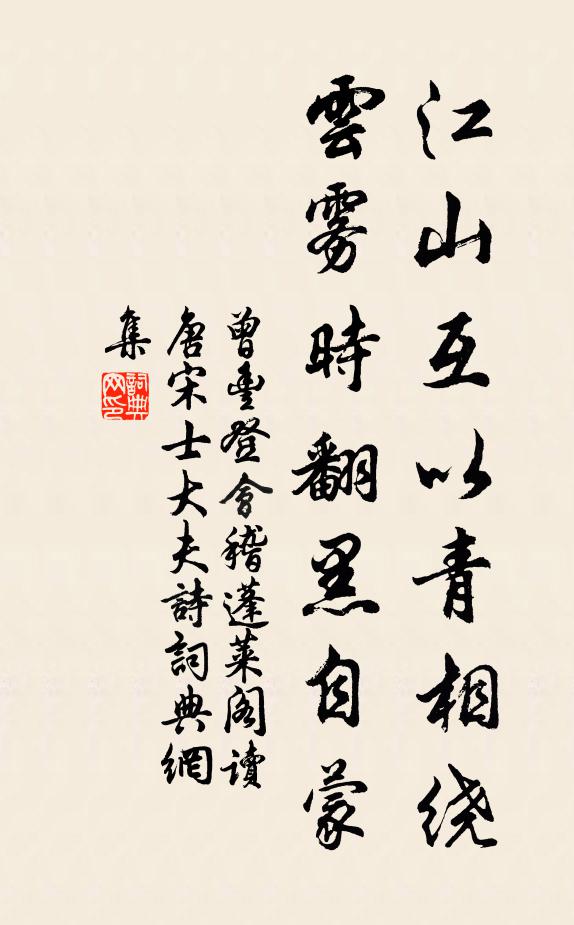 江山互以青相绕
雲雾時翻黑自蒙
曾豊登會稽蓬莱阁讀
唐宋士大夫詩詞典網
集
詞典
网印